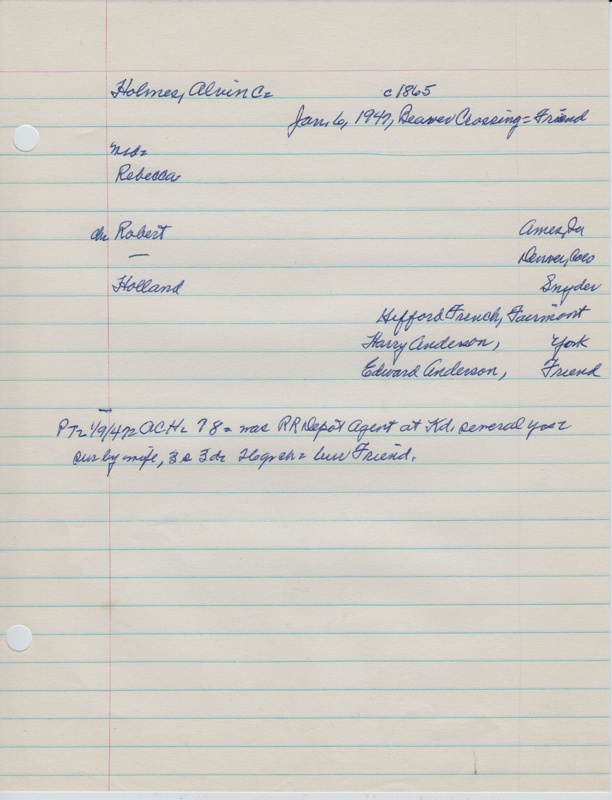 Holmes, Alvin C= c1865
Jan. 6, 1947, Beaver Crossing = Friend
md=
Rebecca
ch Robert Ames, Ia
— Denver, Colo
Holland Snyder
Gifford French, Fairmont
Harry Anderson, York
Edward Anderson, Friend
PT= 1/9/47= ACH= 78= was RR Depot Agent at Kd. several yrs=
sur by wife, 3s 3d= 16grch= bur Friend.